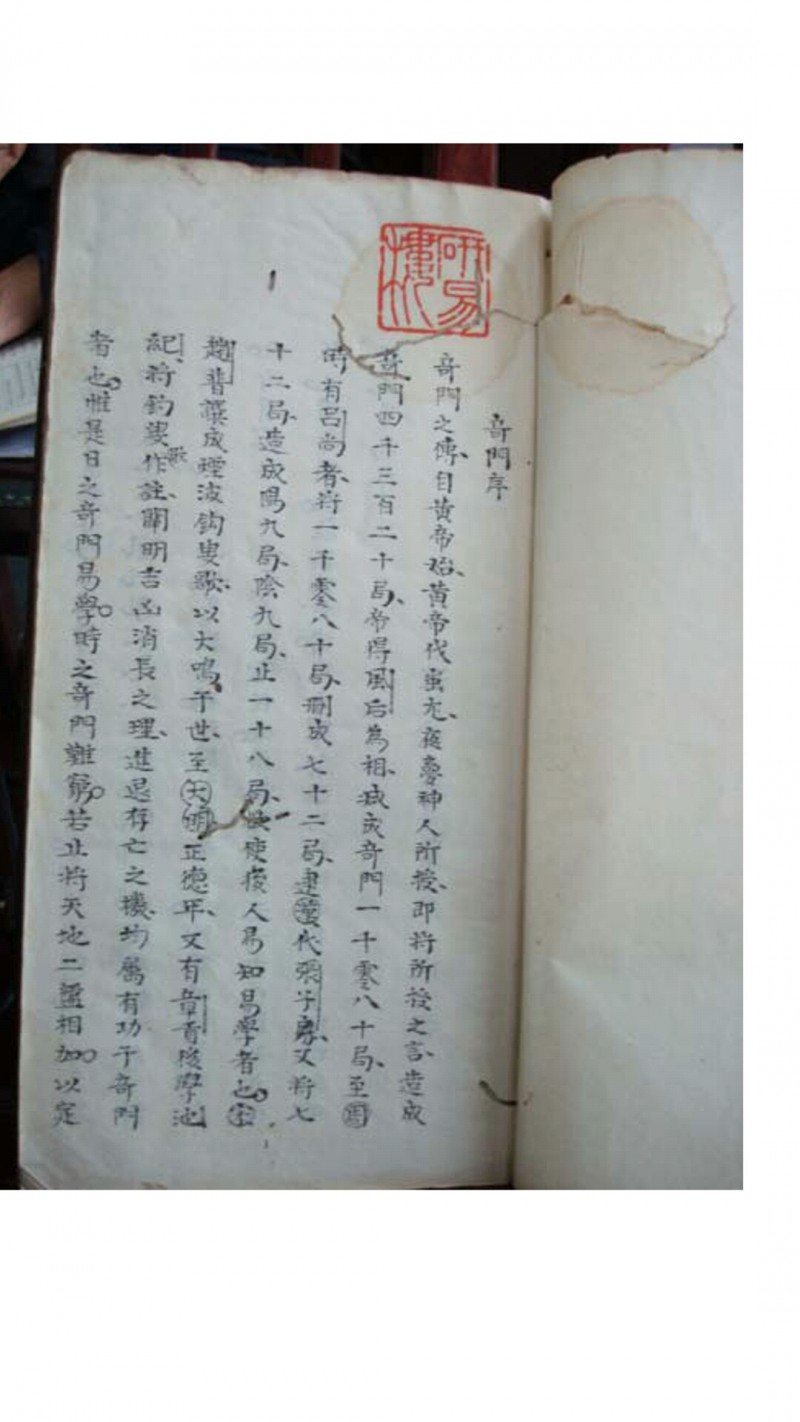 研易樓
奇門序
奇門之傳自黃帝始、黃帝代蚩尤、夜夢神人所授、即將所授之言、造成
奇門四千三百二十局、帝得風后為相、減成奇門一千零八十局、至周
時有呂尚者、將一千零八十局、刪成七十二局、逮漢代張子房、又將七
十二局、造成陽九局、陰九局、止一十八局、使後人易知易學者也。宋
趙普撰成煙波鈎叟歌、以大鳴于世、至大明正德年、又有章貢後學池
紀、將鈎叟歌作註、闡明吉凶消長之理、進退存亡之機、均屬有功于奇門
者也。惟是日之奇門易學。時之奇門難窮。若止將天地二盤相加。以定